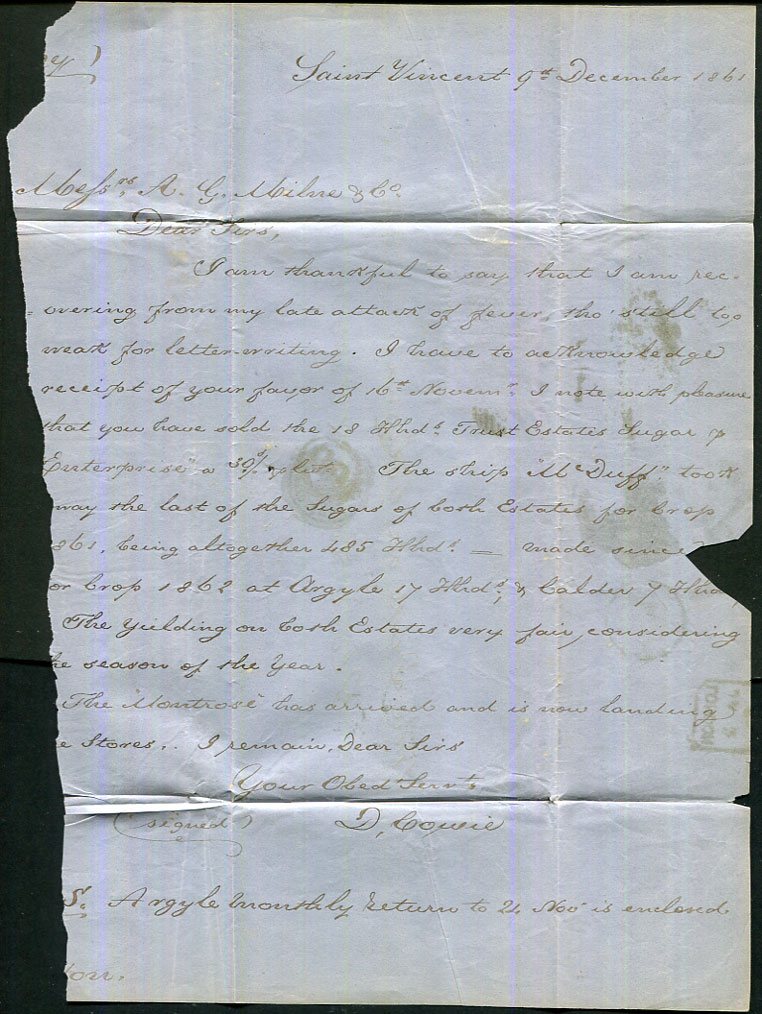 Saint Vincent 9th December 1861
Messrs, A. G. Milne & Co.
Dear Sirs,
I am thankful to say that I am rec-
=overing from my late attack of fever, tho' still too
weak for letter-writing. I have to acknowledge
receipt of your favor of 16th Novemr. I note with pleasure
that you have sold the 18 Hhds. Trust Estates Sugar p
Enterprise" a 30s/
The ship "McDuff" took
way the last of the Sugars of both Estates for Crop
861, being altogether 485 Hhds. — made since
or Crop 1862 at Argyle 17 Hhds, & Calder 7 Hhds,
The yielding on both Estates very fair, considering
he season of the Year.
The Montrose has arrived and is now landing
e Stores,. I remain, Dear Sirs
Your Obed Servts
(signed) D, Cowie
S. Argyle Monthly Return to 24 Nov is enclosed
on.